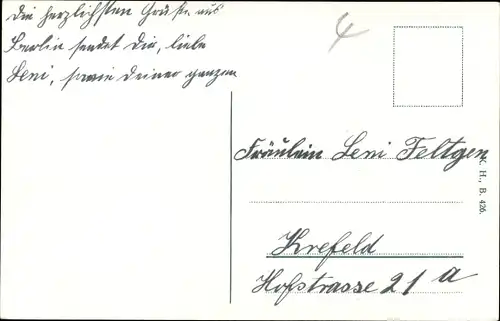 Die herzlichsten Grüße aus
Berlin sendet Dir, liebe
Leni, sowie deiner ganzen
4
Fräulein Leni Feltgen
K. H., B. 426.
Krefeld
Hofstrasse 21 a